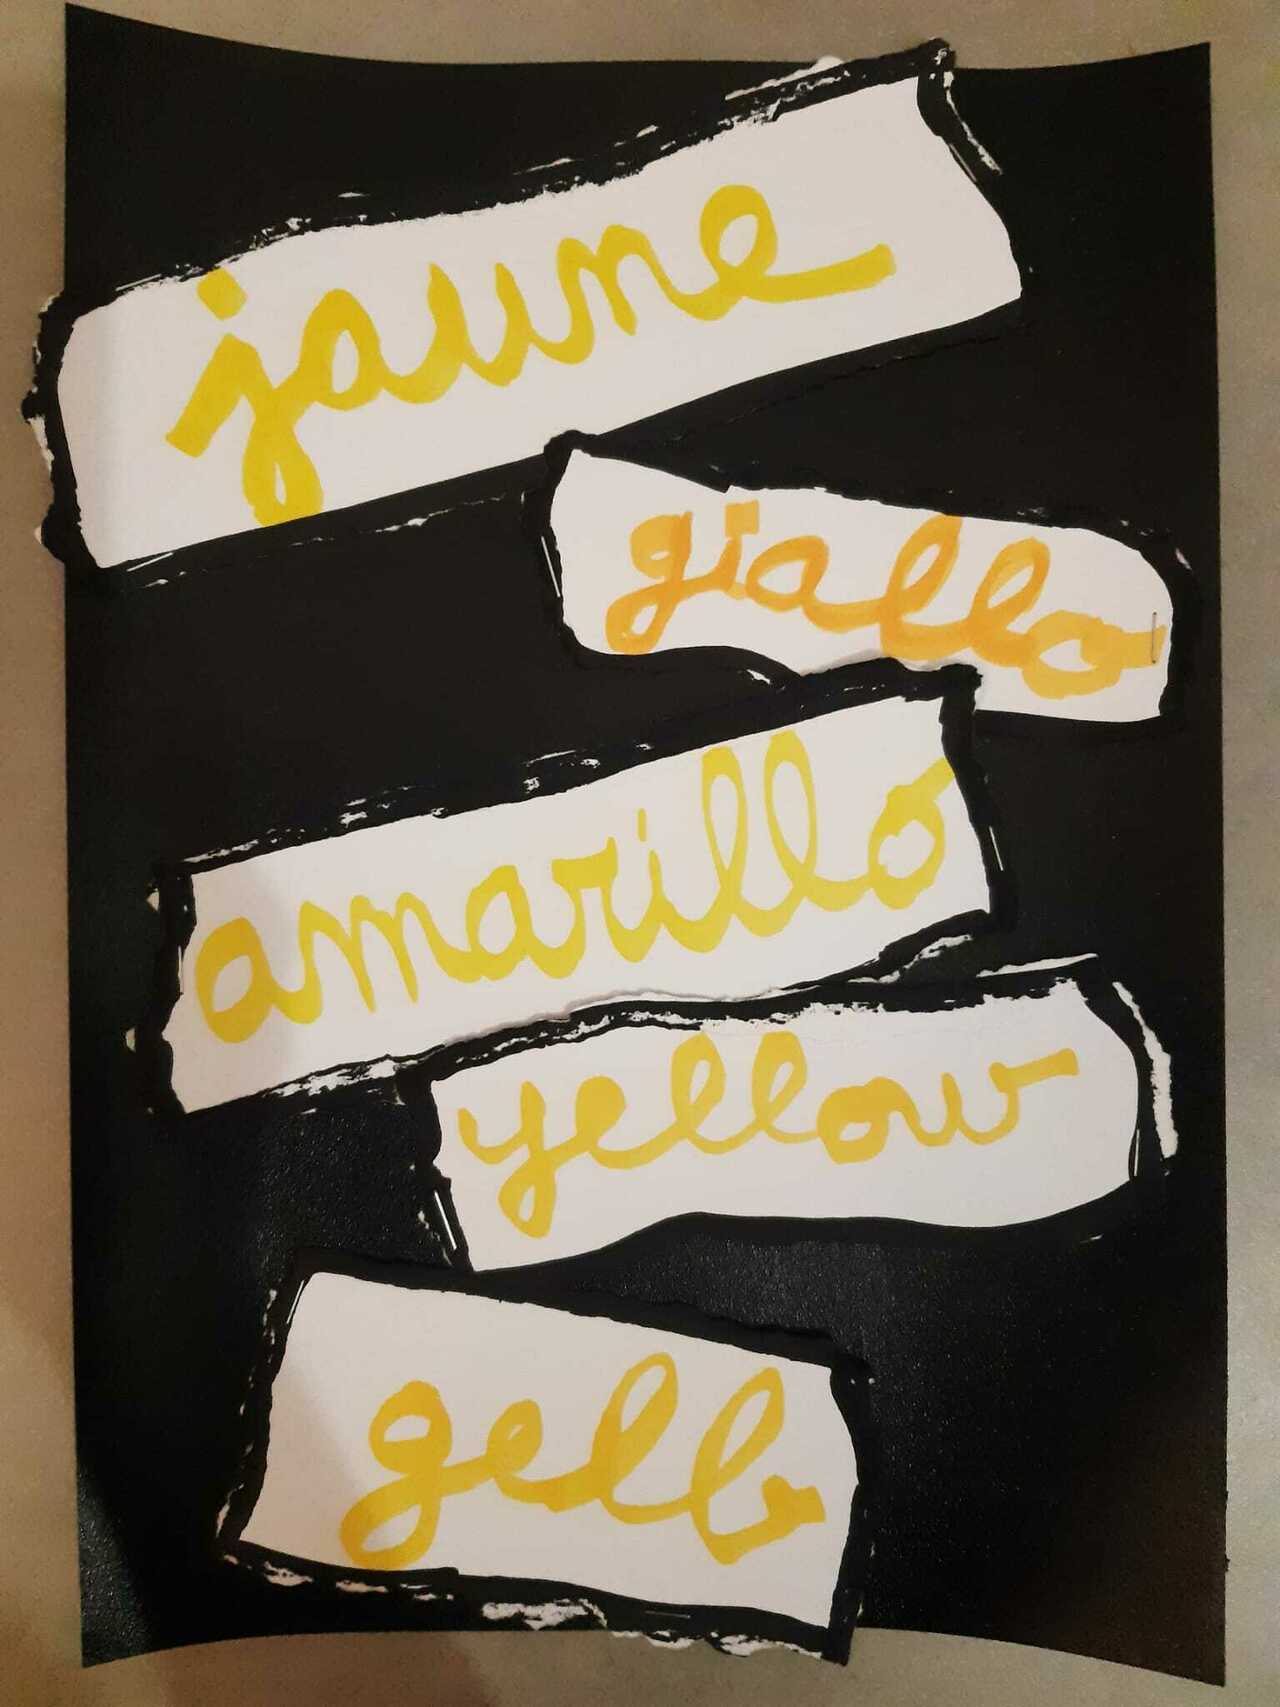 jaune
giallo
amarillo
yellow
gelb